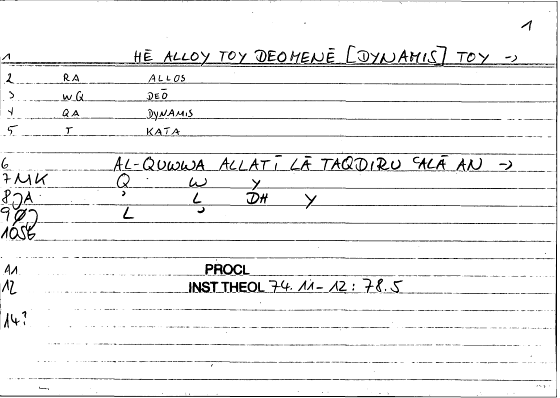 1
1 HĒ ALLOY TOY DEOMENĒ [DYNAMIS] TOY →
2 RA ALLOS
3 WQ DEŌ
4 QA DYNAMIS
5 T KATA
6 AL-QUWWA ALLATĪ LĀ TAQDIRU ʿALĀ AN →
7 MK Q W Y
8 JA ʾ L DH Y
9 L ʾ
10
11 PROCL
12 INST THEOL 74.11-12 : 78.5
14?